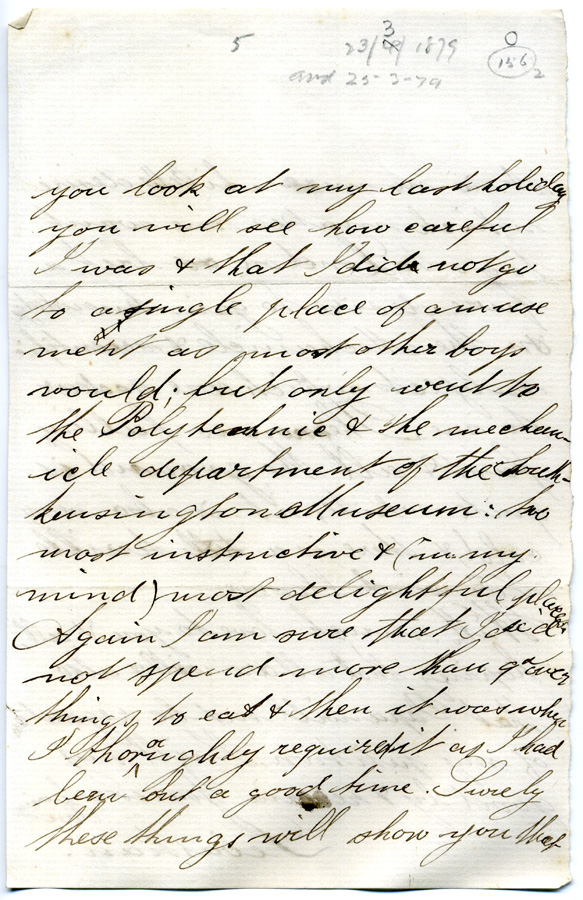 5
23/3/1879
and 25-3-79
0
156
2
you look at my last holiday
you will see how careful
I was & that I did not go
to a single place of amuse
ment as most other boys
would; but only went to
the Polytechnic & the mechan-
icle department of the South-
kensington Museum: two
most instructive & (in my
mind) most delightful places
Again I am sure that I did
not spend more than 9d over
things to eat & then it was when
I thoroughly required it as I had
been out a good time. Surely
these things will show you that